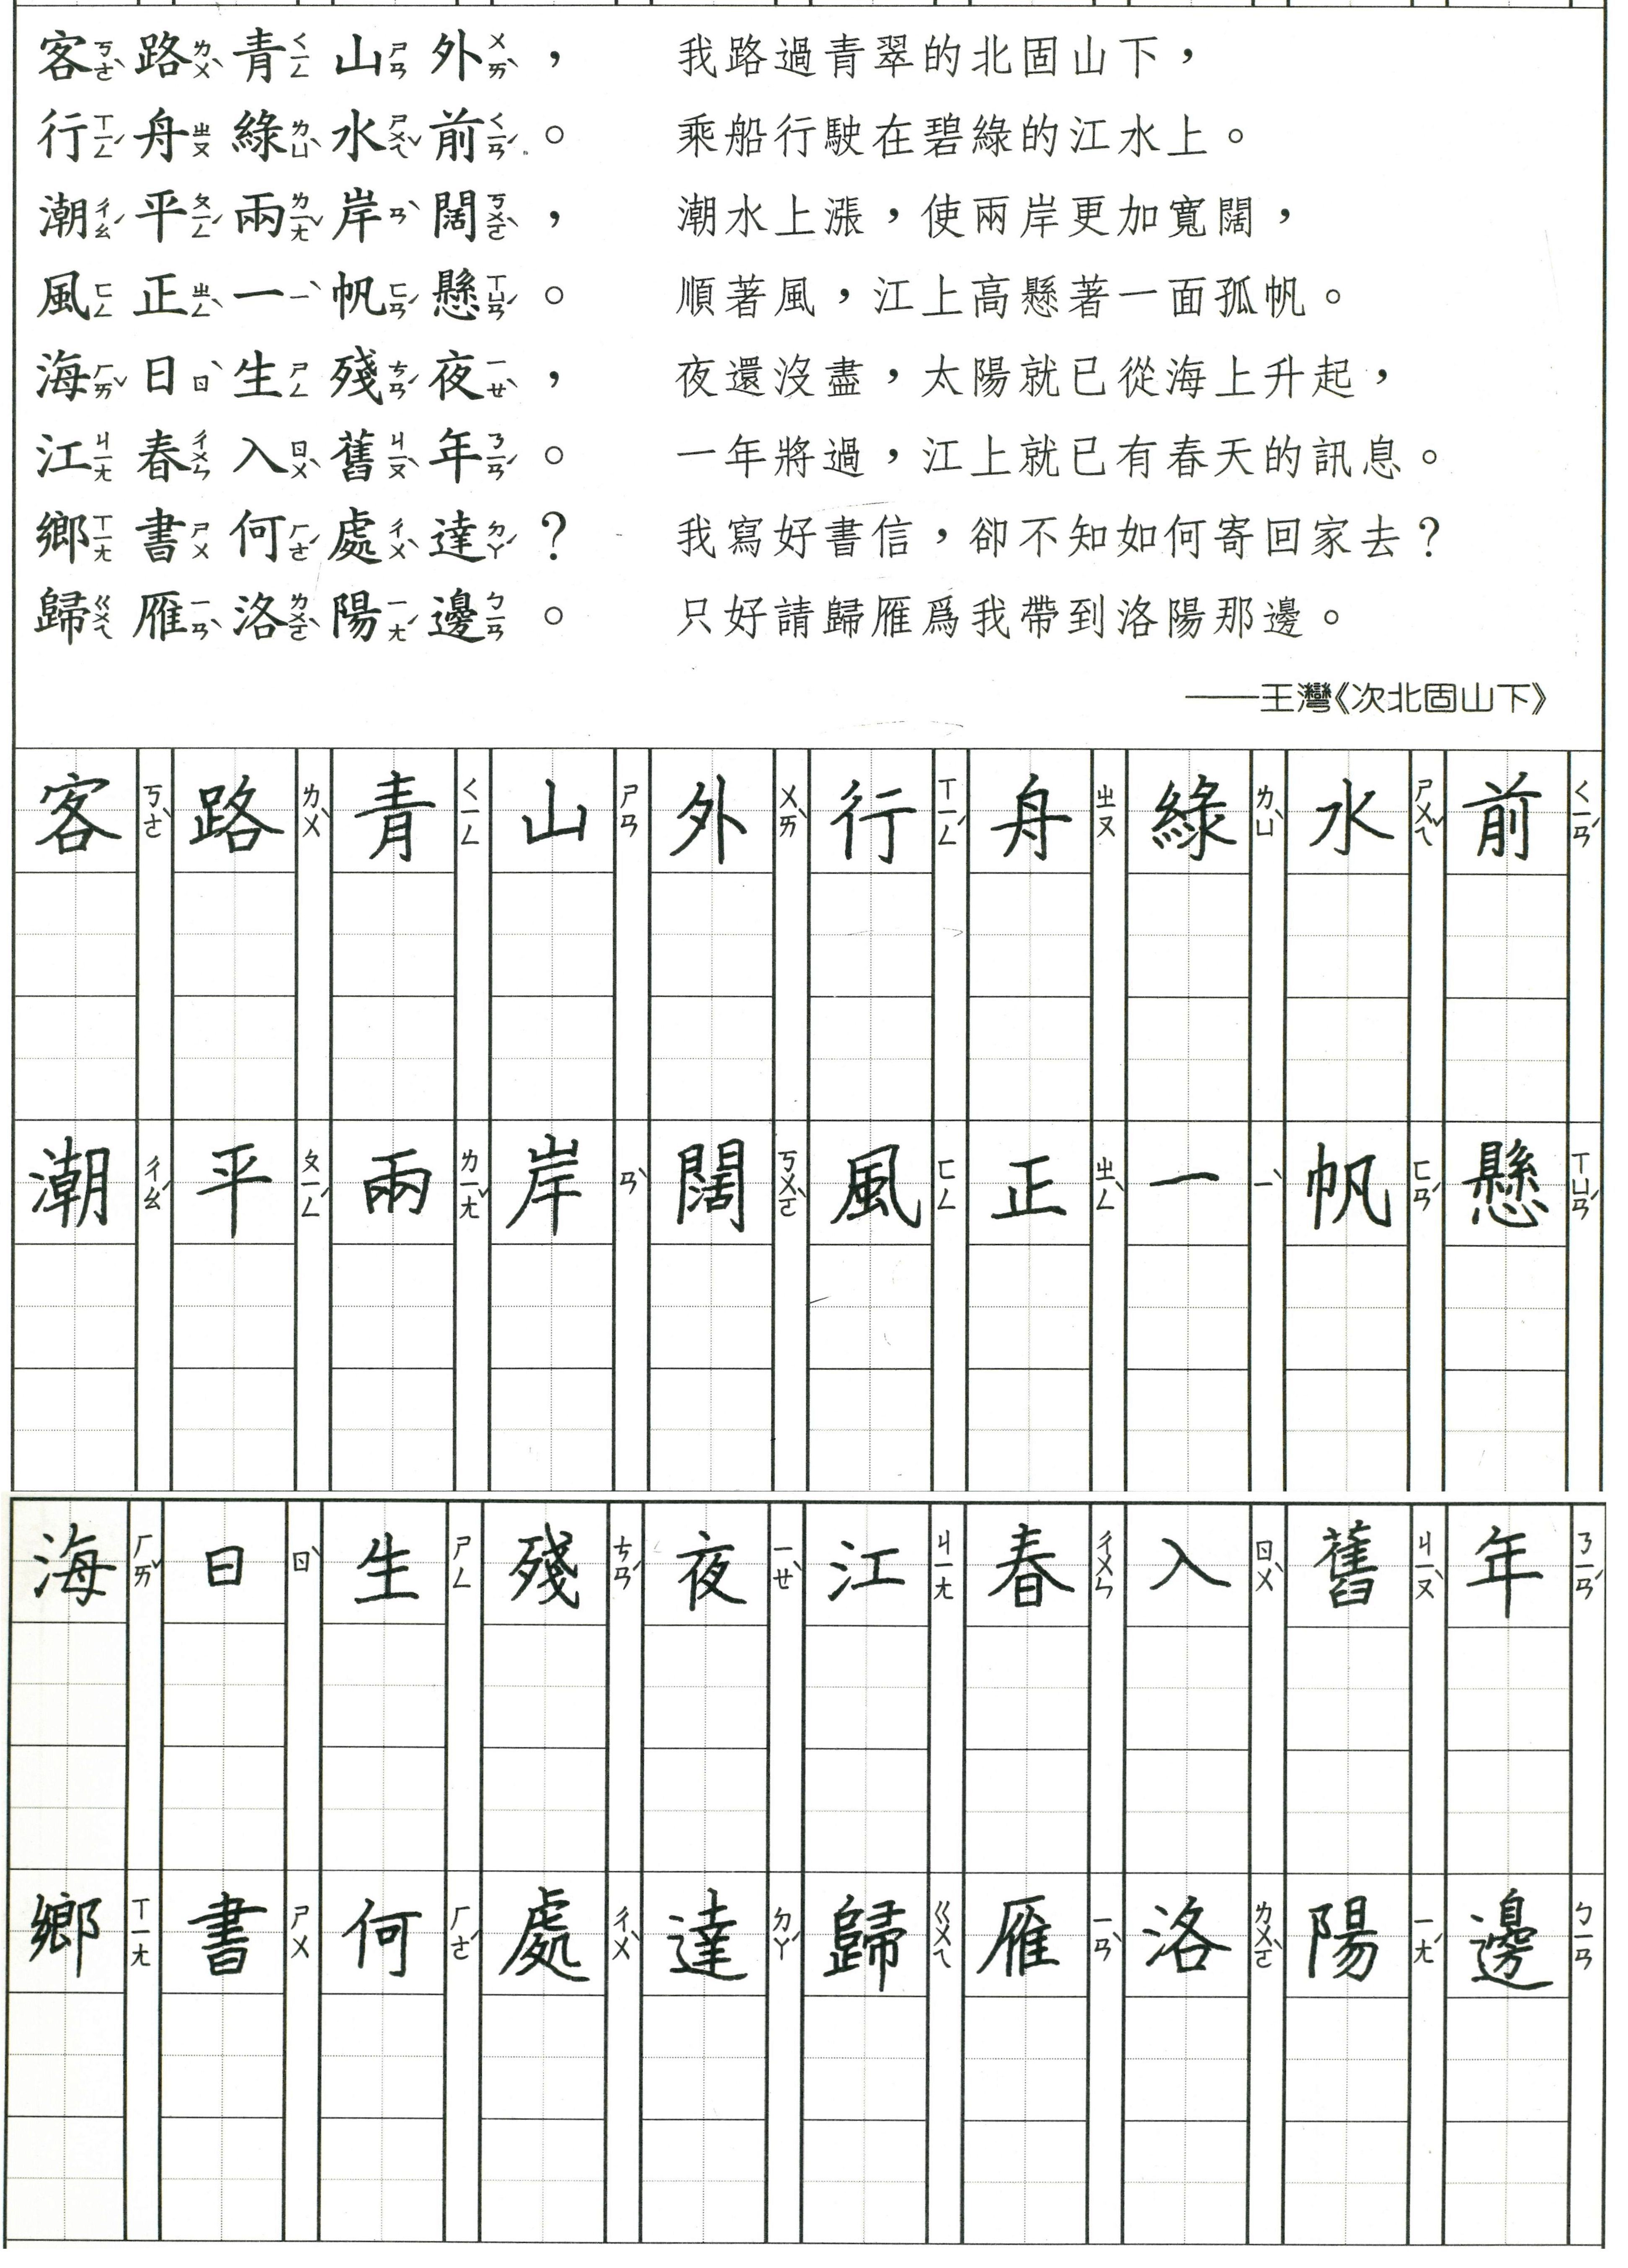 客ㄎㄜˋ路ㄌㄨˋ青ㄑㄧㄥ山ㄕㄢ外ㄨㄞˋ，　我路過青翠的北固山下，
行ㄒㄧㄥˊ舟ㄓㄡ綠ㄌㄩˋ水ㄕㄨㄟˇ前ㄑㄧㄢˊ。　乘船行駛在碧綠的江水上。
潮ㄔㄠˊ平ㄆㄧㄥˊ兩ㄌㄧㄤˇ岸ㄢˋ闊ㄎㄨㄛˋ，　潮水上漲，使兩岸更加寬闊，
風ㄈㄥ正ㄓㄥˋ一ㄧˋ帆ㄈㄢˊ懸ㄒㄩㄢˊ。　順著風，江上高懸著一面孤帆。
海ㄏㄞˇ日ㄖˋ生ㄕㄥ殘ㄘㄢˊ夜ㄧㄝˋ，　夜還沒盡，太陽就已從海上升起，
江ㄐㄧㄤ春ㄔㄨㄣ入ㄖㄨˋ舊ㄐㄧㄡˋ年ㄋㄧㄢˊ。　一年將過，江上就已有春天的訊息。
鄉ㄒㄧㄤ書ㄕㄨ何ㄏㄜˊ處ㄔㄨˋ達ㄉㄚˊ？　我寫好書信，卻不知如何寄回家去？
歸ㄍㄨㄟ雁ㄧㄢˋ洛ㄌㄨㄛˋ陽ㄧㄤˊ邊ㄅㄧㄢ。　只好請歸雁爲我帶到洛陽那邊。
——王灣《次北固山下》
客ㄎㄜˋ路ㄌㄨˋ青ㄑㄧㄥ山ㄕㄢ外ㄨㄞˋ行ㄒㄧㄥˊ舟ㄓㄡ綠ㄌㄩˋ水ㄕㄨㄟˇ前ㄑㄧㄢˊ
潮ㄔㄠˊ平ㄆㄧㄥˊ兩ㄌㄧㄤˇ岸ㄢˋ闊ㄎㄨㄛˋ風ㄈㄥ正ㄓㄥˋ一ㄧˋ帆ㄈㄢˊ懸ㄒㄩㄢˊ
海ㄏㄞˇ日ㄖˋ生ㄕㄥ殘ㄘㄢˊ夜ㄧㄝˋ江ㄐㄧㄤ春ㄔㄨㄣ入ㄖㄨˋ舊ㄐㄧㄡˋ年ㄋㄧㄢˊ
鄉ㄒㄧㄤ書ㄕㄨ何ㄏㄜˊ處ㄔㄨˋ達ㄉㄚˊ歸ㄍㄨㄟ雁ㄧㄢˋ洛ㄌㄨㄛˋ陽ㄧㄤˊ邊ㄅㄧㄢ